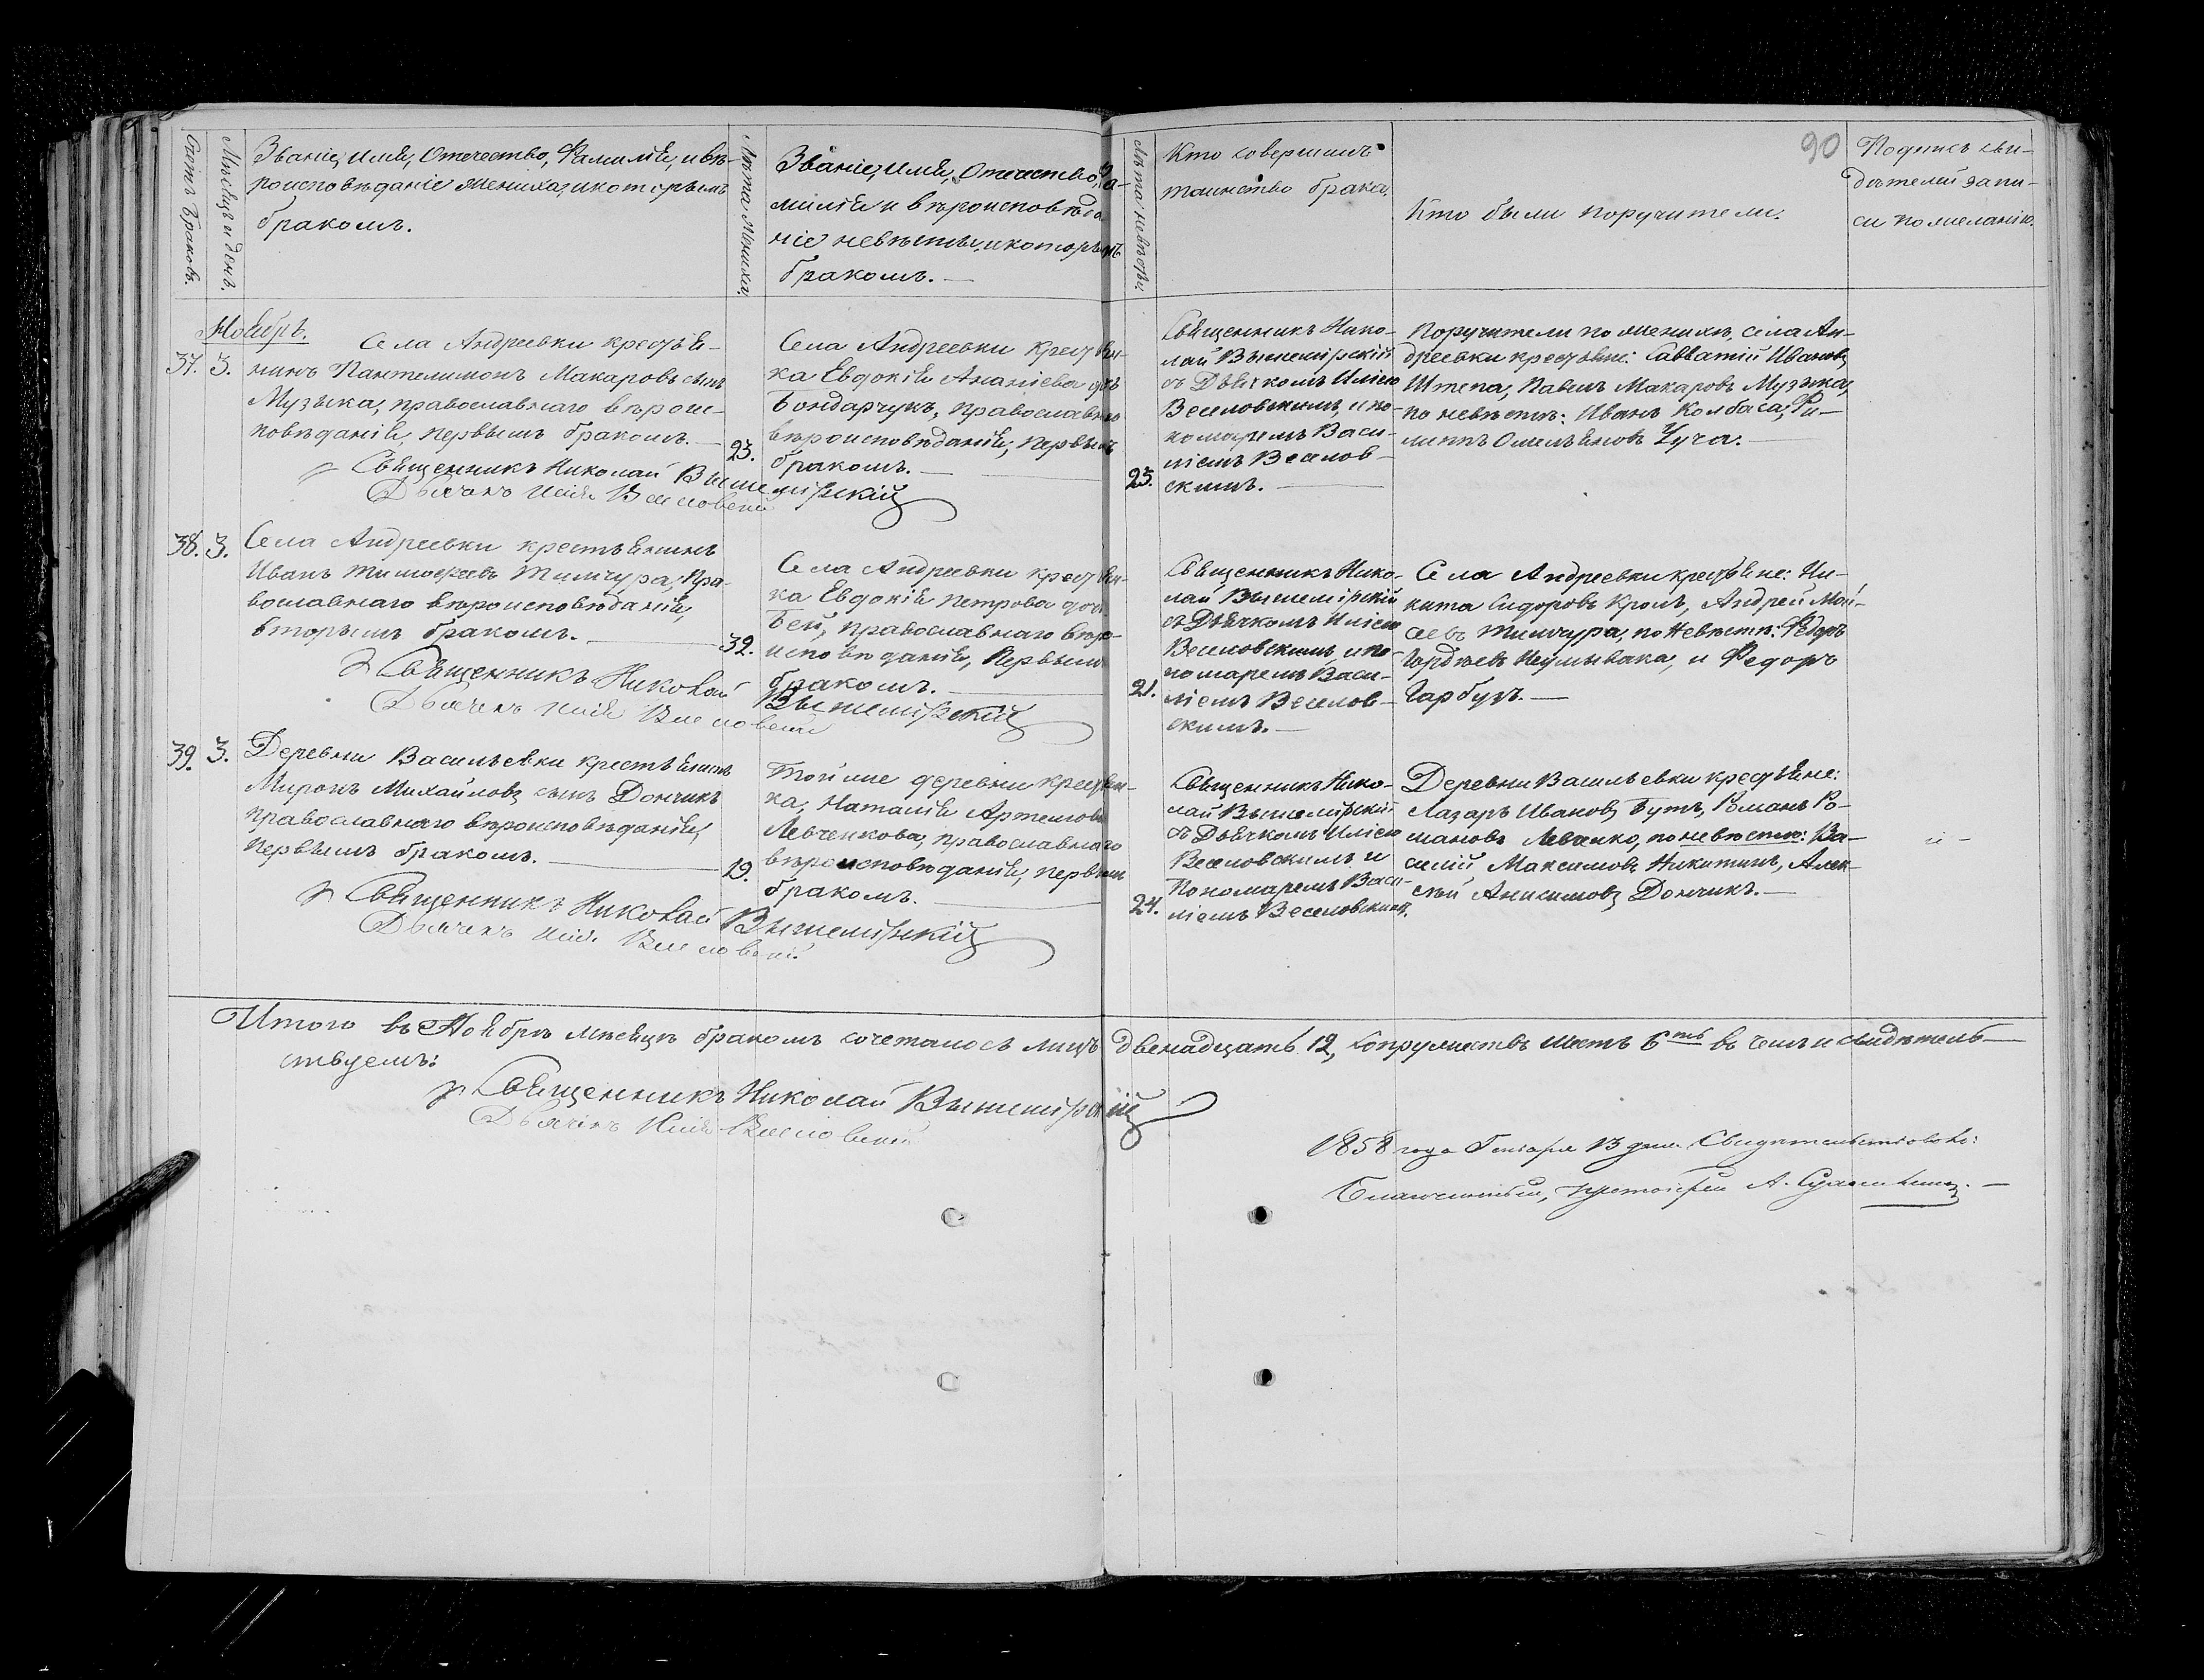 90
Счетъ Браковъ.
Мѣсяцъ и день.
Званіе, имя, Отечество, Фамилія, и вѣ-
роисповѣданіе жениха, и которымъ
бракомъ.
Лѣта Жениха.
Званіе, имя, Отечество, Фа-
милія и вѣроисповѣда
ніе невѣсты, и которымъ
бракомъ.—
Лѣта невѣсты.
Кто совершилъ
таинство брака.
Кто были поручители.
Подпись сви-
дѣтелей запи-
си по желанію.
Ноябрь.
37. 3.
Села Андреевки крестья-
нинъ Пантелимонъ Макаровъ сынъ
Музыка, православнаго вѣроис-
повѣданія, первымъ бракомъ.—
23.
Села Андреевки крестьян-
ка Евдокія Ананіева дочь
Бондарчукъ, православнаго
вѣроисповѣданія, первымъ
бракомъ.—
25.
Священникъ Нико-
лай Вышемірскій
съ Дьячкомъ Иліею
Веселовскимъ, и по-
номаремъ Васи-
ліемъ Веселов-
скимъ.—
Поручители по женихѣ, села Ан-
дреевки крестьяне: Савватій Ивановъ
Штепа, Павелъ Макаровъ Музыка,
по невѣстѣ: Иванъ Колбаса, Фи-
липпъ Омельяновъ Чуча.—
Священникъ Николай Вышемірскій
Дьячекъ Илія Веселовскій
38. 3.
Села Андреевки крестьянинъ
Иванъ Тимофеевъ Тимчура, Пра-
вославнаго вѣроисповѣданія,
вторымъ бракомъ.—
32.
Села Андреевки крестьян-
ка Евдокія Петрова дочь
Бей, православнаго вѣро-
исповѣданія, Первымъ
бракомъ.—
21.
Священникъ Нико-
лай Вышемірскій
съ Дьячкомъ Иліею
Веселовскимъ, и по-
номаремъ Васи-
ліемъ Веселов-
скимъ.—
Села Андреевки крестьяне: Ни-
кита Сидоровъ Кроль, Андрей Мой-
сеевъ Тимчура, по Невѣстѣ: Федоръ
Гордѣевъ Неумывака, и Федоръ
Гарбузъ.—
Священникъ Николай Вышемірскій
Дьячекъ Илія Веселовскій
39. 3.
Деревни Васильевки крестьянинъ
Миронъ Михайловъ сынъ Дончикъ
Православнаго вѣроисповѣданія,
Первымъ бракомъ.—
19.
Той же деревни крестьян-
ка, Наталія Артемова
Левченкова, православнаго
вѣроисповѣданія, первымъ
бракомъ.—
24.
Священникъ Нико-
лай Вышемірскій
съ Дьячкомъ Иліею
Веселовскимъ и
Пономаремъ Васи-
ліемъ Веселовскимъ.
Деревни Васильевки крестьяне:
Лазарь Ивановъ Бутъ, Романъ Ро-
мановъ Левченко, по невѣстѣ: Ва-
силій, Максимовъ Никитинъ, Алек-
сѣй Анисимовъ Дончикъ.—
Священникъ Николай Вышемірскій
Дьячекъ Илія Веселовскій
Итого въ Ноябрѣ мѣсяцѣ бракомъ сочеталось лицъ двенадцать 12, Супружествъ шесть 6ть въ чемъ и свидѣтель-
ствуемъ:
Священникъ Николай Вышемірскій
Дьячекъ Илія Веселовскій
1858 года Генваря 13 дня Свидѣтельствовалъ:
Благочинный, протоіерей А.